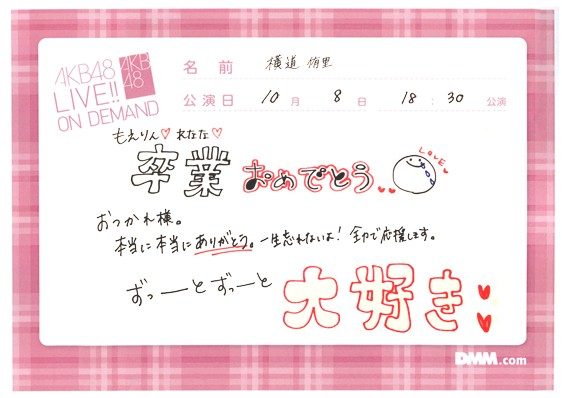 AKB48
LIVE!!
ON DEMAND
AKB
48
名前 横道 侑里
公演日 10月 8日 18:30 公演
もえりん♡ れなな♡
卒業おめでとう
LOVE
おつかれ様。
本当に本当にありがとう。一生忘れないよ！全力で応援します。
ずっーとずっーと
大好き
DMM.com